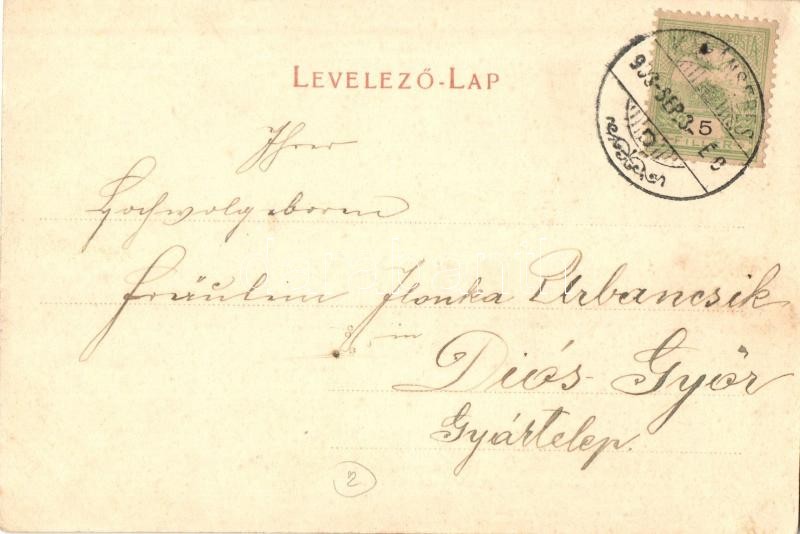 LEVELEZŐ-LAP
903 SEP 3
5
FILLÉR
Ihrer
Hochwolgeboren
Fräulein Ilonka Urbancsik
in
Diós-Győr
Gyártelep.
2